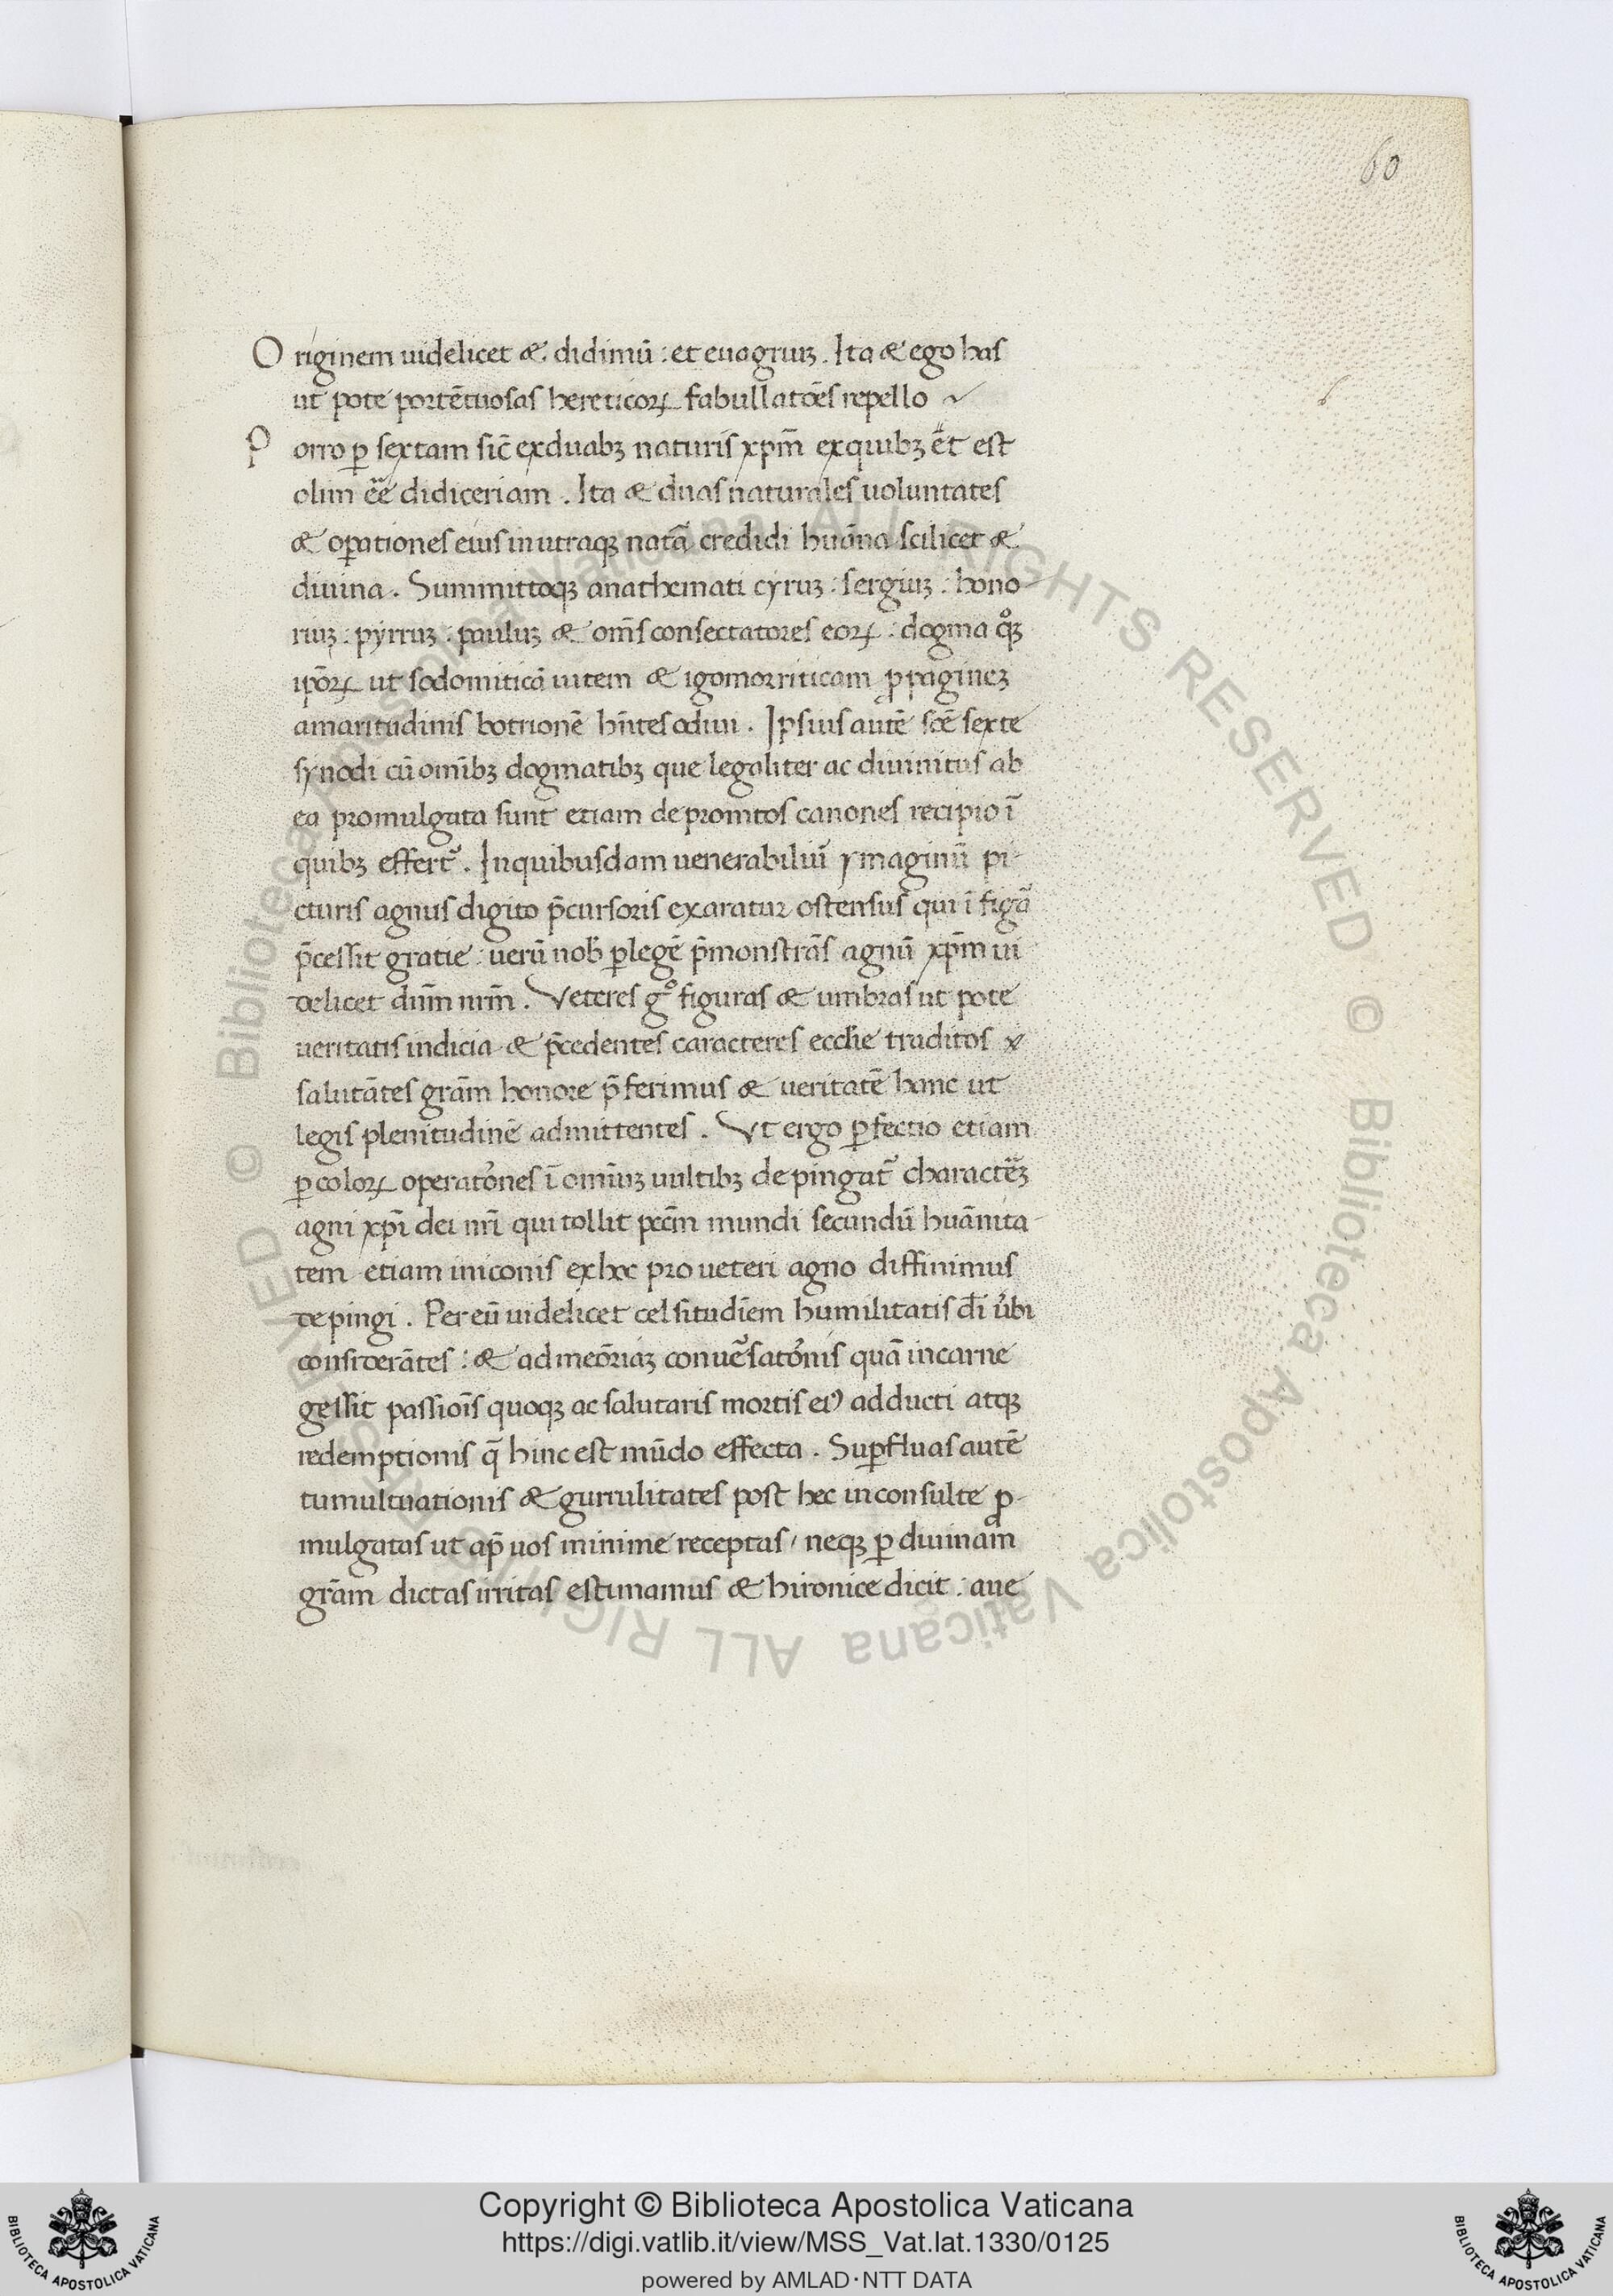 60
Originem uidelicet & didimū : et euagriuꝫ . Ita & ego has
ut pote portētuosas hereticoꝝ fabullatōes repello
Porro ꝑ sextam sic̄ exduabꝫ naturis xp̄m exquibꝫ ēt est
olim eē̄ didiceriam . Ita & duas naturales uoluntates
& oꝑationes eius in utraqꝫ natā credidi huāna scilicet &
diuina . Summittoqꝫ anathemati cyruꝫ : sergiuꝫ : hono
riuꝫ : pyrruꝫ : pauluꝫ & om̄s consectatores eoꝝ : dogma qͦꝫ
ip̄oꝝ ut sodomiticā uitem & igomorriticam ꝓpagineꝫ
amaritudinis botrionē hn̄tes odiui . Ipsius autē scē sexte
synodi cū omībꝫ dogmatibꝫ que legaliter ac diuinitus ab
ea promulgata sunt etiam depromtos canones recipio ī
quibꝫ effert᷑ . Inquibusdam uenerabiliū ymaginū pi
cturis agnus digito p̄cursoris exaratur ostensus qui ī figā
p̄cessit gratie : uerū nob̄ ꝑlegē p̄monstrās agnū xp̄m ui
delicet dn̄m nr̄m . Veteres gͦ figuras & umbras ut pote
ueritatis indicia & p̄cedentes caracteres eccl̄ie traditos
salutātes grām honore p̄ferimus & ueritatē hanc ut
legis plenitudinē admittentes . Vt ergo ꝑfectio etiam
ꝑ coloꝝ operatōnes ī omīuꝫ uultibꝫ depingat᷑ charactē̄ꝫ
agni xp̄i dei nr̄i qui tollit pccm̄ mundi secundū huānita
tem etiam iniconis exhoc pro ueteri agno diffinimus
depingi . Per eū uidelicet celsitudīem humilitatis dī u̓bi
considerātes : & admeōriaꝫ conue᷑satōnis quā incarne
gessit passiōis quoqꝫ ac salutaris mortis eiꝰ adducti atqꝫ
redemptionis q̄ hinc est mūdo effecta . Suꝑfluas autē
tumultuationis & gurrulitates post hec inconsulte ꝓ
mulgatas ut ap̄ uos minime receptas / neqꝫ ꝑ diuinam
grām dictas irritas estimamus & hironice dicit : aue
© Biblioteca Apostolica Vaticana ALL RIGHTS RESERVED © Biblioteca Apostolica Vaticana ALL RIGHTS RESERVED
Copyright © Biblioteca Apostolica Vaticana
https://digi.vatlib.it/view/MSS_Vat.lat.1330/0125
powered by AMLAD·NTT DATA
BIBLIOTECA APOSTOLICA VATICANA
BIBLIOTECA APOSTOLICA VATICANA